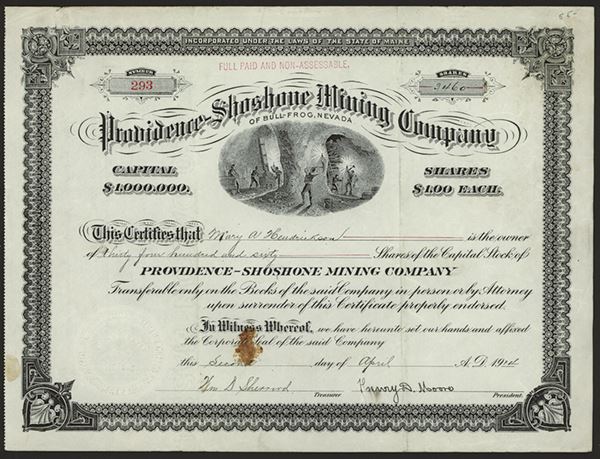 85-
INCORPORATED UNDER THE LAWS OF THE STATE OF MAINE
FULL PAID AND NON-ASSESSABLE.
NUMBER
293
SHARES
3460
Providence-Shoshone Mining Company
OF BULL-FROG, NEVADA
CAPITAL
$1,000,000.
SHARES
$1.00 EACH.
This Certifies that Mary A Hendrickson is the owner
of Thirty four hundred and sixty Shares of the Capital Stock of
PROVIDENCE-SHOSHONE MINING COMPANY
Transferable only on the Books of the said Company in person or by Attorney
upon surrender of this Certificate properly endorsed.
In Witness Whereof, we have hereunto set our hands and affixed
the Corporate Seal of the said Company
this Second day of April A.D. 1914
Wm D Sherrord Henry D. Moore
Treasurer President